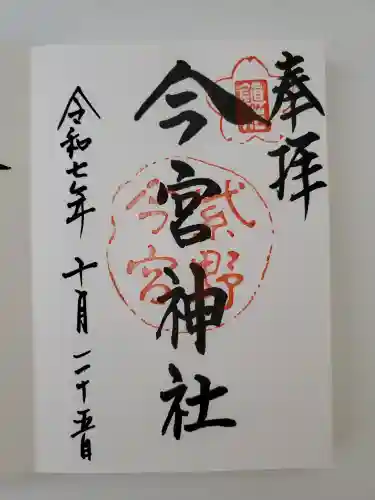 奉拝
今宮神社
貮野
今宮
令和七年 十月 二十五日